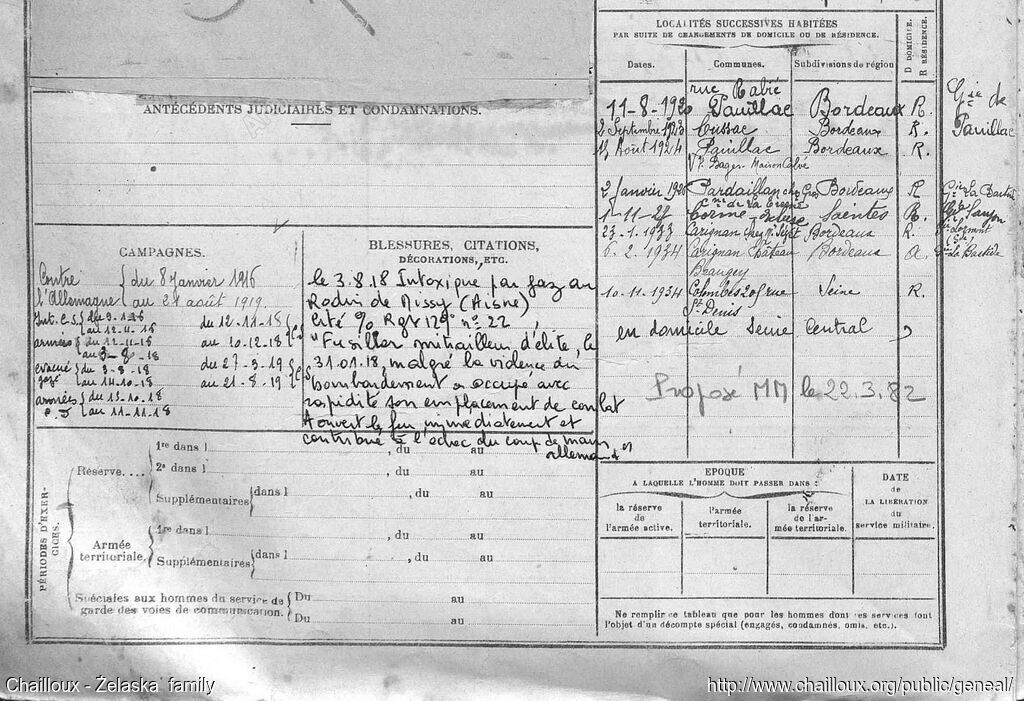 ANTÉCÉDENTS JUDICIAIRES ET CONDAMNATIONS.
CAMPAGNES.
Contre { du 8 Janvier 1916
l'Allemagne { au 21 août 1919
Int. C.S. { du 8-1-16
au 12-11-16
armées { du 12-11-16
au 3-8-18
évacué { du 3-8-18
gazé { au 14-10-18
armées { du 15-10-18
au 11-11-18
du 12-11-18
au 10-12-18
du 27-3-19
au 21-8-19
BLESSURES, CITATIONS,
DÉCORATIONS, ETC.
le 3.8.18 Intoxiqué par gaz au
de Missy (Aisne)
Cité % Rgt 129e n° 22
"Fusilier mitrailleur d'élite, le
31.01.18, malgré la violence du
bombardement a occupé avec
rapidité son emplacement de combat
A ouvert le feu immédiatement et
contribué à l'échec du coup de main
allemand"
PÉRIODES D'EXERCICES.
Réserve....
1re dans l , du au
2e dans l , du au
Supplémentaires { dans l , du au
Armée
territoriale.
1re dans l , du au
Supplémentaires { dans l , du au
Spéciales aux hommes du service de
garde des voies de communication.
Du au
Du au
LOCALITÉS SUCCESSIVES HABITÉES
PAR SUITE DE CHANGEMENTS DE DOMICILE OU DE RÉSIDENCE.
Dates. Communes. Subdivisions de région D DOMICILE. R RÉSIDENCE.
rue
11-8-192 Pauillac Bordeaux R. Gie de
2 Septembre 1923 Cussac Bordeaux R. Pauillac
Août 1924 Pauillac Bordeaux R.
Bages Maison Calvé
2 Janvier 192 Bordeaux R
1-11-27 Saintes R.
23-1-1933 Carignan chez Bordeaux R.
6-2-1934 Carignan Château Bordeaux La Bastide
Beaugey
10-11-1934 Colombes 205 rue Seine R.
St Denis
en domicile Seine Central
Proposé MM le 22.3.82
EPOQUE
A LAQUELLE L'HOMME DOIT PASSER DANS :
la réserve
de
l'armée active.
l'armée
territoriale.
la réserve
de l'ar-
mée territoriale.
DATE
de
LA LIBÉRATION
du
service militaire.
Ne remplir ce tableau que pour les hommes dont les services font
l'objet d'un décompte spécial (engagés, condamnés, omis, etc.).
Chailloux - Żelaska family
http://www.chailloux.org/public/geneal/